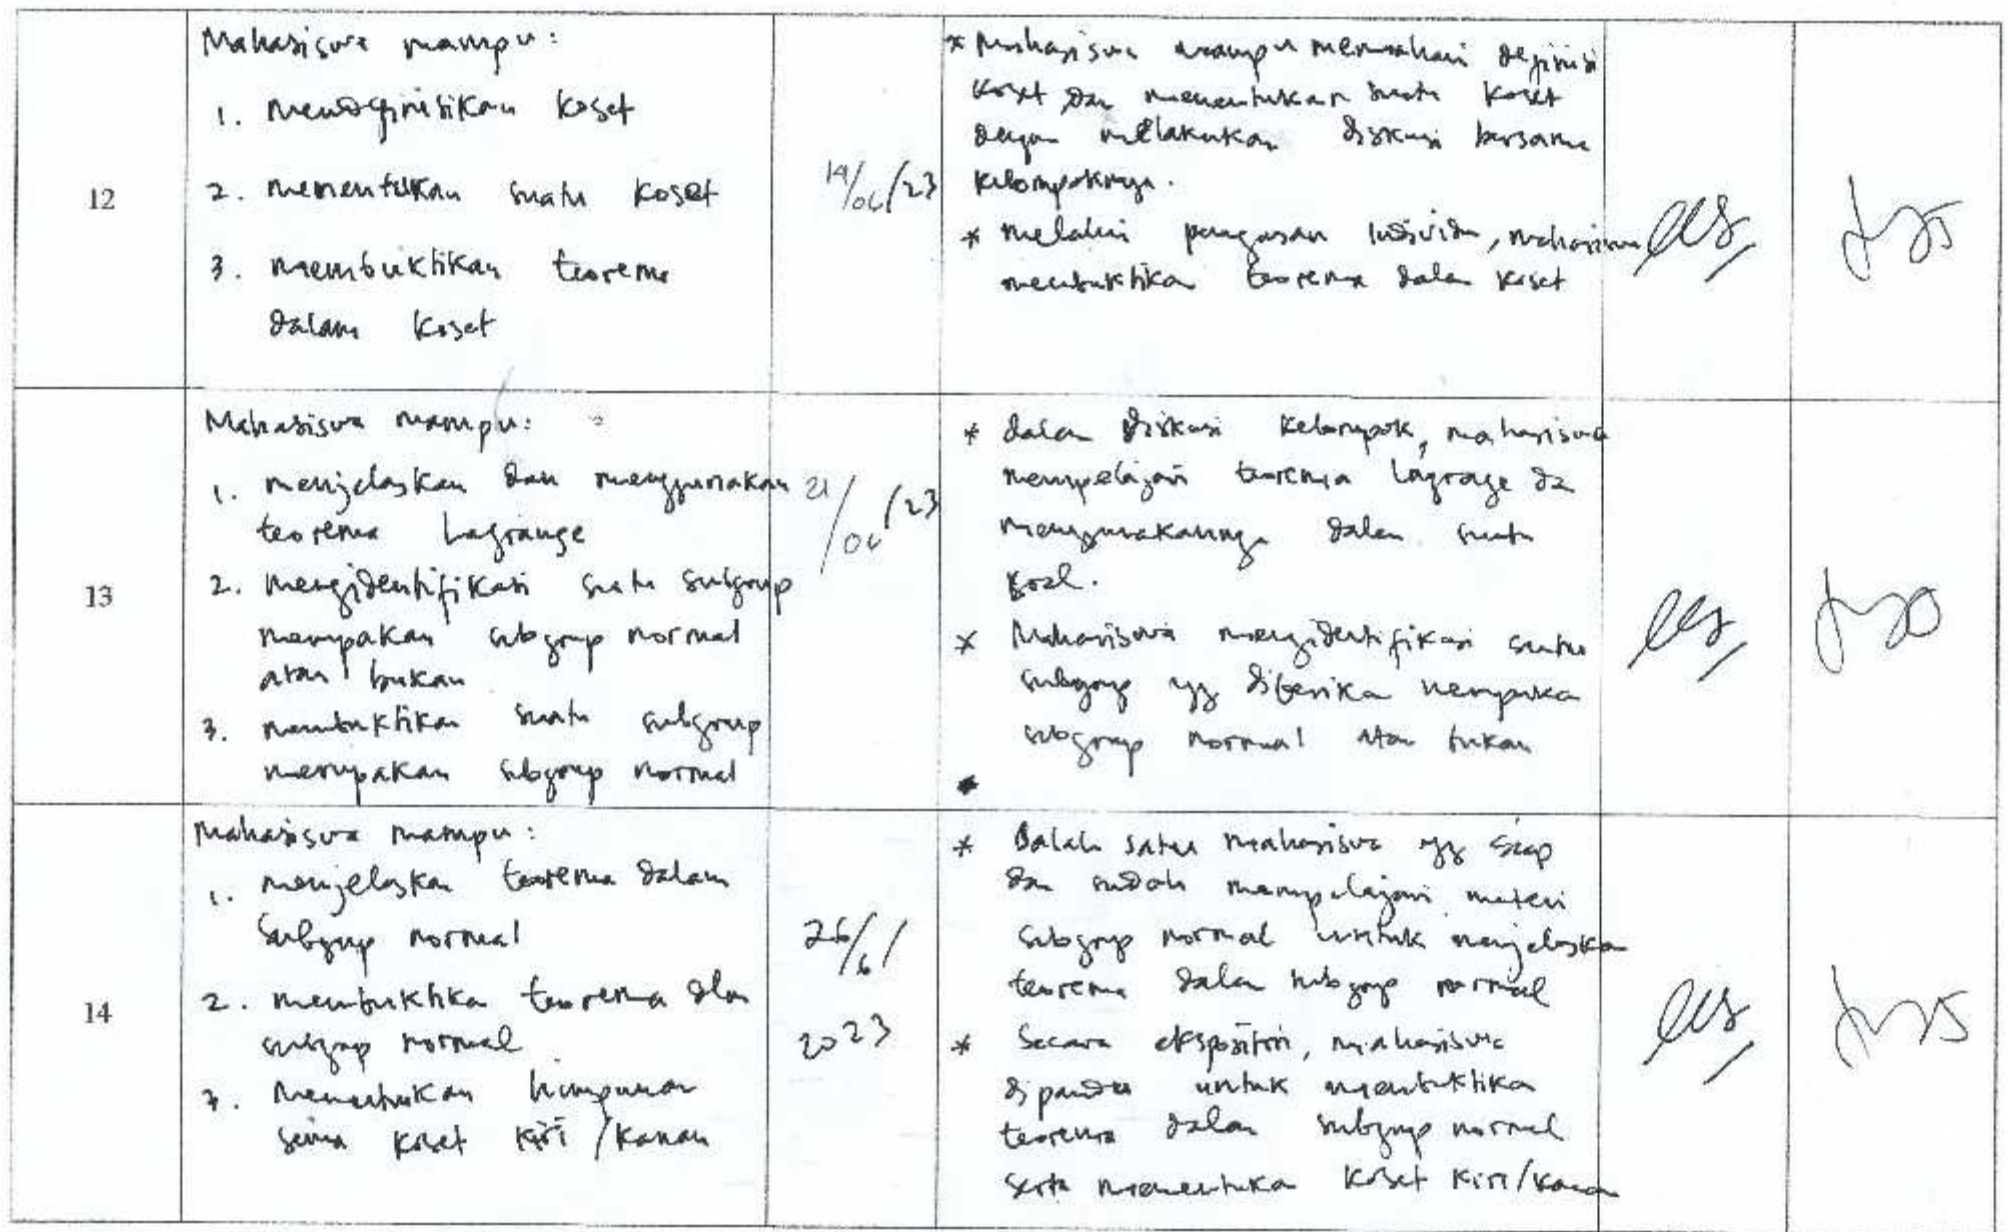 12
Mahasiswa mampu:
1. mendefinisikan koset
2. menentukan suatu koset
3. membuktikan teorema
dalam koset
14/06/23
* Mahasiswa mampu memahami definisi
koset dan menentukan suatu koset
dengan melakukan diskusi bersama
kelompoknya.
* melalui penugasan individu, mahasiswa
membuktikan teorema dalam koset
13
Mahasiswa mampu:
1. menjelaskan dan menggunakan
teorema Lagrange
2. mengidentifikasi suatu subgrup
merupakan subgrup normal
atau bukan
3. membuktikan suatu subgrup
merupakan subgrup normal
21/06/23
* dalam diskusi kelompok, mahasiswa
mempelajari teorema Lagrange dan
menggunakannya dalam suatu
soal.
* Mahasiswa mengidentifikasi suatu
subgrup yg diberikan merupakan
subgrup normal atau bukan
*
14
Mahasiswa mampu:
1. menjelaskan teorema dalam
subgrup normal
2. membuktikan teorema dlm
subgrup normal
3. menentukan himpunan
semua koset kiri/kanan
26/6/
2023
* Salah satu mahasiswa yg siap
dan sudah mempelajari materi
subgrup normal untuk menjelaskan
teorema dalam subgrup normal
* Secara ekspositori, mahasiswa
dipandu untuk membuktikan
teorema dalam subgrup normal
serta menentukan koset kiri/kanan